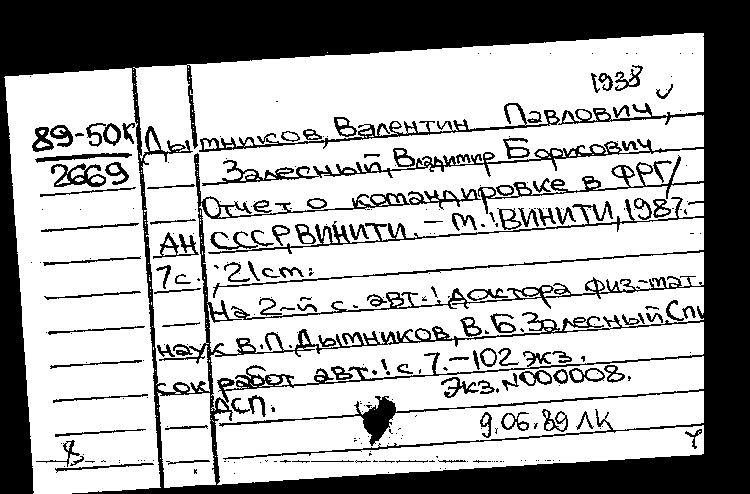 1938
89-50К Дымников, Валентин Павлович,
2669 Залесный, Владимир Борисович.
Отчет о командировке в ФРГ/
АН СССР, ВИНИТИ. - М.: ВИНИТИ, 1987. -
7с.; 21см.
На 2-й с. авт.: доктора физ.-мат.
наук В.П. Дымников, В.Б. Залесный. Спи
сок работ авт.: с. 7. - 102 экз.
Экз. N000008.
ДСП.
9.06.89 ЛК
8